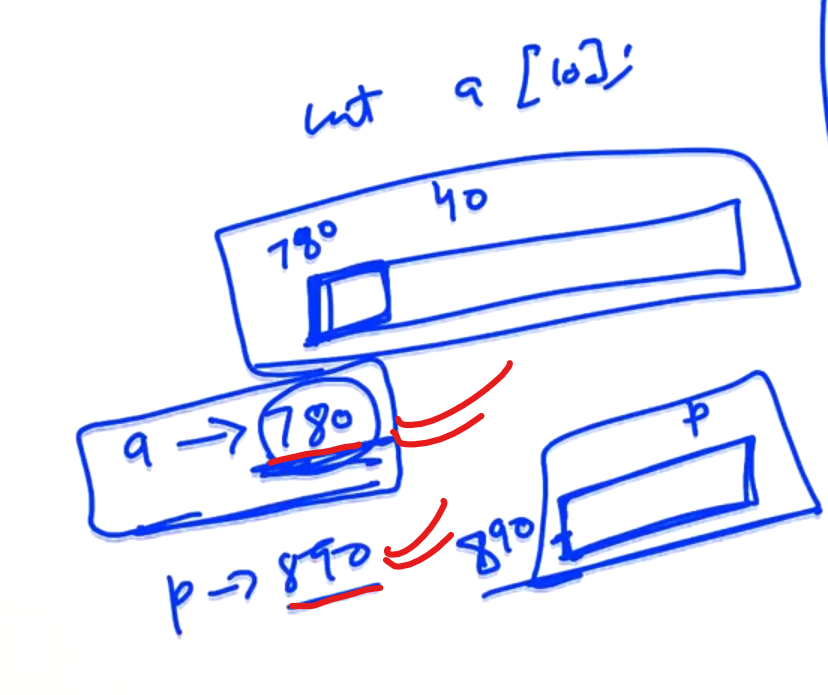 int a [10];
40
780
a → 780
p
890
p → 890